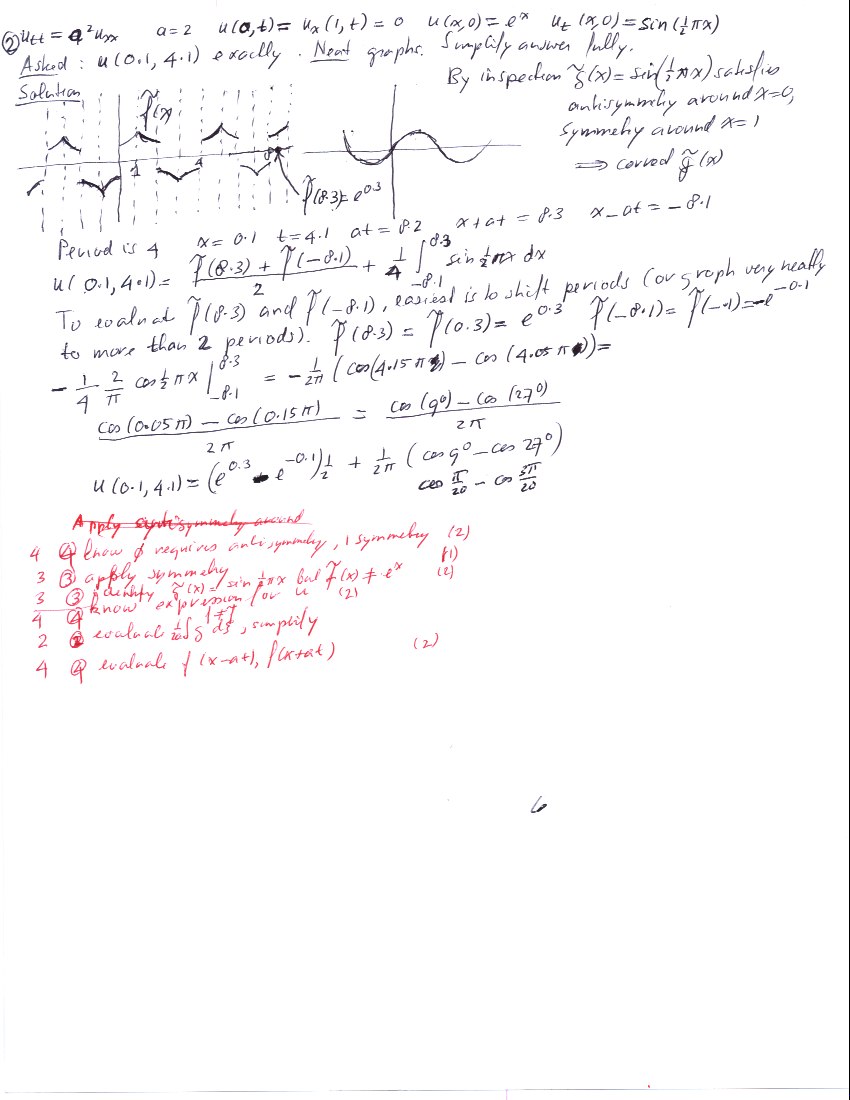 ② u_tt = a² u_xx a=2 u(0,t) = u_x(1,t) = 0 u(x,0) = e^x u_t(x,0) = sin(½πx)
Asked : u(0.1, 4.1) exactly. Neat graphs. Simplify answer fully.
Solution
f̃(x)
1 4 8
f̃(8.3) = e^0.3
By inspection g̃(x) = sin(½πx) satisfies
antisymmetry around x=0,
symmetry around x=1
⟹ correct g̃(x)
Period is 4 x = 0.1 t = 4.1 at = 8.2 x+at = 8.3 x-at = -8.1
u(0.1, 4.1) = (f̃(8.3) + f̃(-8.1))/2 + 1/4 ∫_{-8.1}^{8.3} sin ½πx dx
To evaluat f̃(8.3) and f̃(-8.1), easiest is to shift periods (or graph very neatly
to more than 2 periods). f̃(8.3) = f̃(0.3) = e^0.3 f̃(-8.1) = f̃(-.1) = -e^-0.1
- 1/4 2/π cos ½πx |_{-8.1}^{8.3} = - 1/2π (cos(4.15π) - cos(4.05π)) =
(cos(0.05π) - cos(0.15π))/2π = (cos(9°) - cos(27°))/2π
u(0.1, 4.1) = (e^0.3 - e^-0.1) ½ + 1/2π (cos 9° - cos 27°)
cos π/20 - cos 3π/20
Apply symmetry around
4 ④ know 0 requires antisymmetry, 1 symmetry (2)
3 ③ apply symmetry (1)
3 ③ identify g̃(x) = sin ½πx but f̃(x) ≠ e^x (2)
4 ④ know expression for u (2)
2 ② evaluate ∫ g̃ dξ, simplify
4 ④ evaluate f(x-at), f(x+at) (2)
6